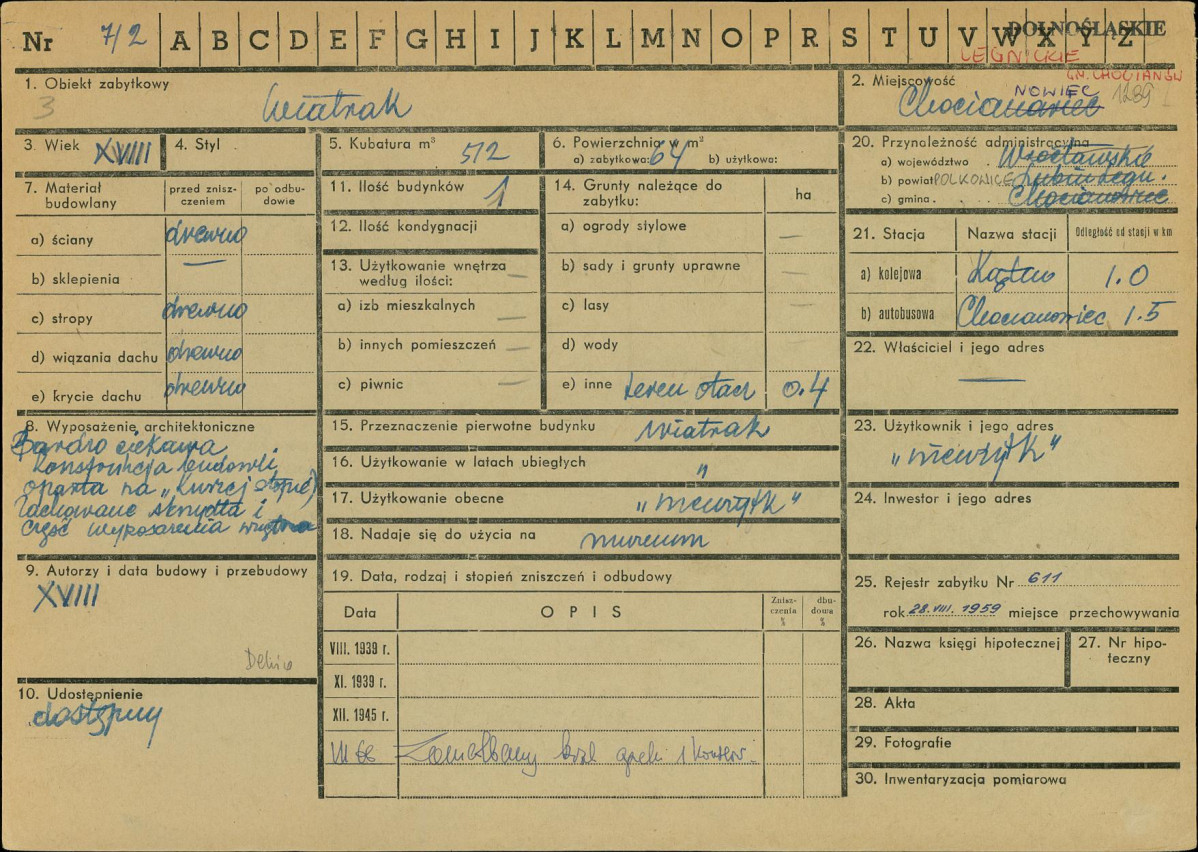 Nr 7/2 A B C D E F G H I J K L M N O P R S T U V W X Y Z
DOLNOŚLĄSKIE
LEGNICKIE
GN. CHOCIANÓW
1. Obiekt zabytkowy
3
wiatrak
2. Miejscowość
NOWIEC
Chocianowiec
1289
3. Wiek XVIII
4. Styl
5. Kubatura m³ 512
6. Powierzchnia w m²
a) zabytkowa: 64 b) użytkowa:
7. Materiał budowlany
przed znisz-
czeniem
po odbu-
dowie
a) ściany drewno
b) sklepienia —
c) stropy drewno
d) wiązania dachu drewno
e) krycie dachu drewno
8. Wyposażenie architektoniczne
Bardzo ciekawa
konstrukcja budowli
oparta na „kurzej stopie)
Zachowane skrzydła i
część wyposażenia wnętrza
9. Autorzy i data budowy i przebudowy
XVIII
10. Udostępnienie
dostępny
11. Ilość budynków 1
12. Ilość kondygnacji
13. Użytkowanie wnętrza
według ilości: —
a) izb mieszkalnych —
b) innych pomieszczeń —
c) piwnic —
14. Grunty należące do
zabytku:
ha
a) ogrody stylowe —
b) sady i grunty uprawne —
c) lasy —
d) wody
e) inne teren otacz 0.4
15. Przeznaczenie pierwotne budynku wiatrak
16. Użytkowanie w latach ubiegłych "
17. Użytkowanie obecne „nieużytk"
18. Nadaje się do użycia na muzeum
19. Data, rodzaj i stopień zniszczeń i odbudowy
Data OPIS
Znisz-
czenia
%
dbu-
dowa
%
VIII. 1939 r.
XI. 1939 r.
XII. 1945 r.
20. Przynależność administracyjna
a) województwo Wrocławskie
b) powiat POLKOWICE Lubin Legn.
c) gmina Chocianowiec
21. Stacja Nazwa stacji Odległość od stacji w km
a) kolejowa 1.0
b) autobusowa Chocianowiec 1.5
22. Właściciel i jego adres
—
23. Użytkownik i jego adres
„nieużytk"
24. Inwestor i jego adres
25. Rejestr zabytku Nr 611
rok 28.VIII.1959 miejsce przechowywania
26. Nazwa księgi hipotecznej
27. Nr hipo-
teczny
28. Akta
29. Fotografie
30. Inwentaryzacja pomiarowa